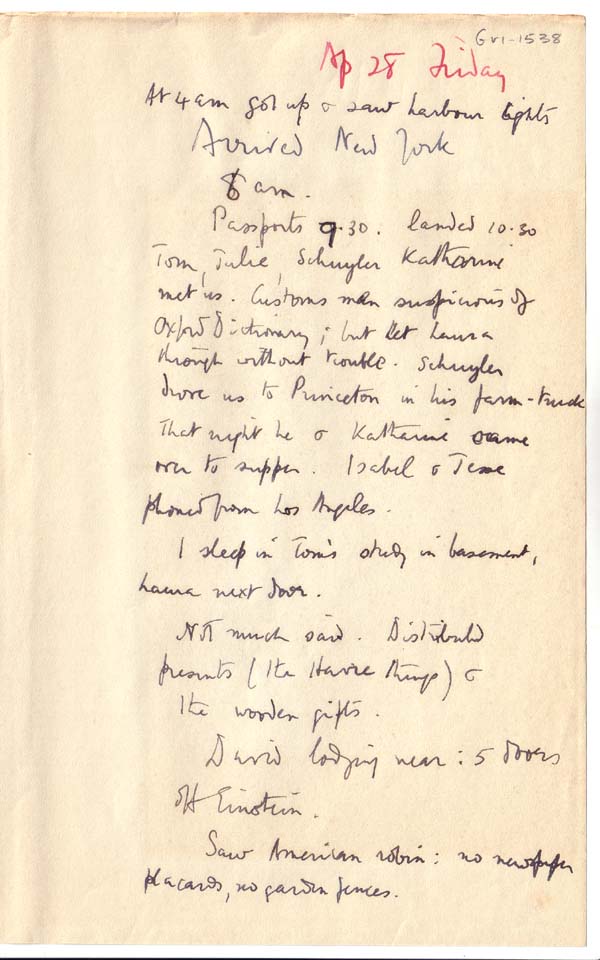 Gv1-1538
Ap 28 Friday
At 4 am got up & saw harbour lights
Arrived New York
8 am.
Passports 9.30. landed 10.30
Tom, Julie, Schuyler Katharine
met us. Customs man suspicious of
Oxford Dictionary; but let Laura
through without trouble. Schuyler
drove us to Princeton in his farm-truck
That night he & Katharine came
over to supper. Isabel & Jesse
phoned from Los Angeles.
I sleep in Tom's study in basement,
Laura next door.
Not much said. Distributed
presents (the Havre things) &
the wooden gifts.
David lodging near: 5 doors
off Einstein.
Saw American robin: no newspaper
placards, no garden fences.